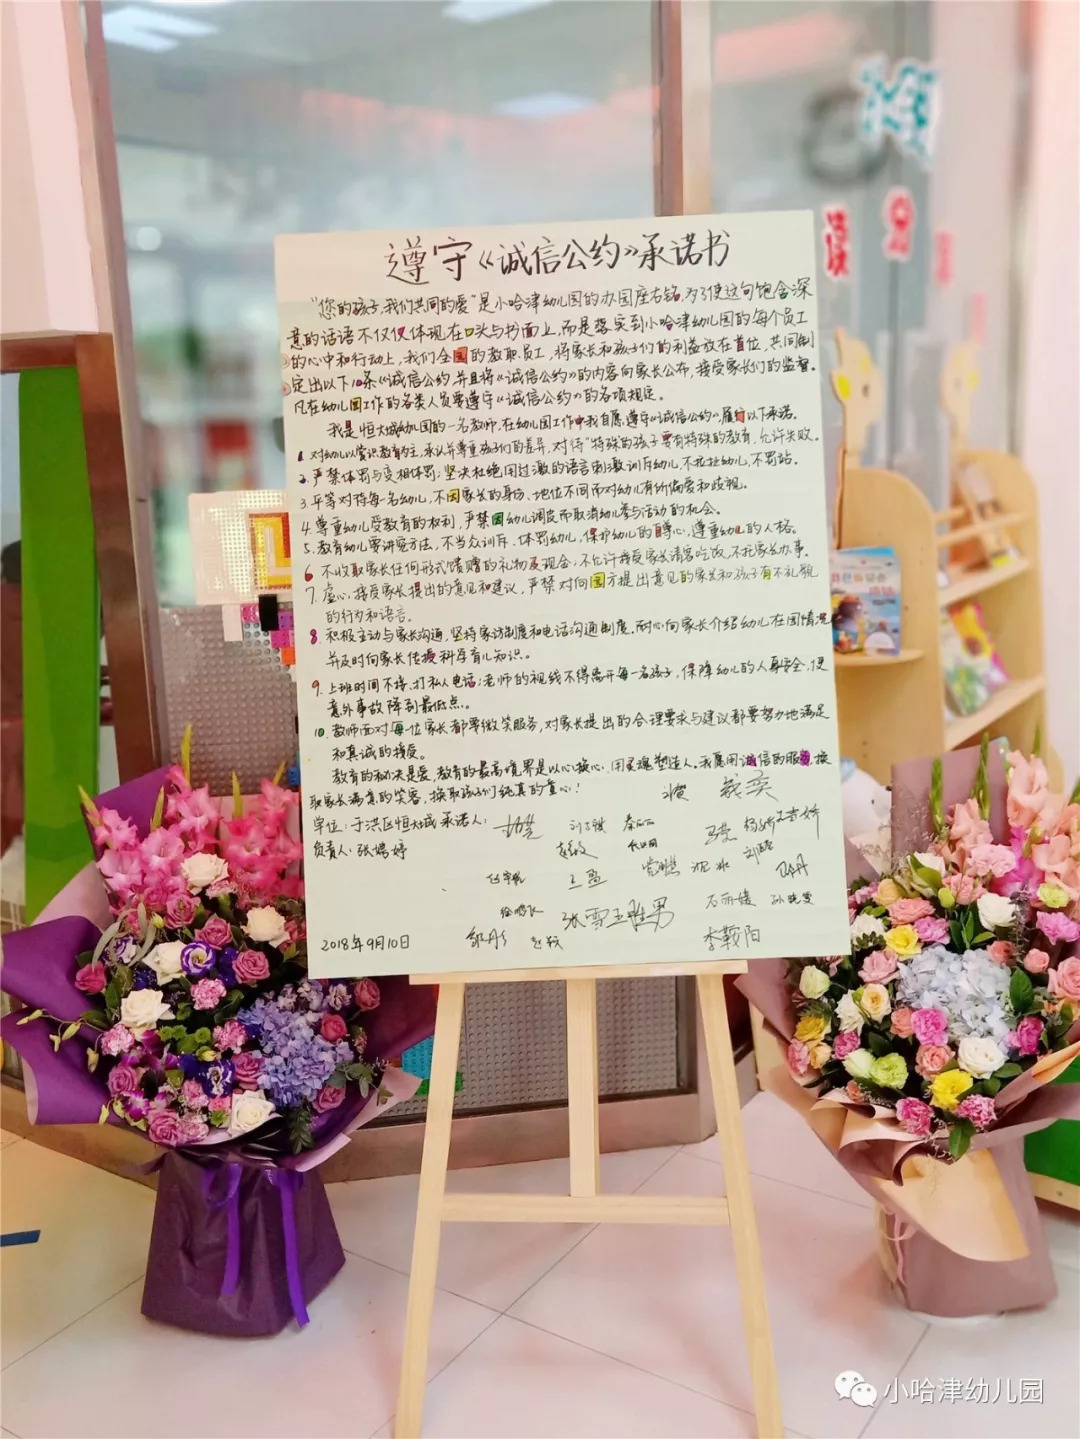 遵守《诚信公约》承诺书
"您的孩子,我们共同的爱"是小哈津幼儿园的办园座右铭,为了使这句饱含深
意的话语不仅仅体现在口头与书面上,而是落实到小哈津幼儿园的每个员工
的心中和行动上,我们全园的教职员工,将家长和孩子们的利益放在首位,共同制
定出以下10条《诚信公约》并且将《诚信公约》的内容向家长公布,接受家长们的监督。
凡在幼儿园工作的各类人员要遵守《诚信公约》的各项规定。
我是恒大城幼儿园的一名教师,在幼儿园工作中我自愿遵守《诚信公约》,履行以下承诺。
1. 对幼儿以赏识教育为主,承认并尊重孩子们的差异,对待"特殊的孩子要有特殊的教育,允许失败。
2. 严禁体罚与变相体罚;坚决杜绝用过激的语言刺激训斥幼儿,不拉扯幼儿,不罚站。
3. 平等对待每一名幼儿,不因家长的身份、地位不同而对幼儿有所偏爱和歧视。
4. 尊重幼儿受教育的权利,严禁因幼儿调皮而取消幼儿参与活动的机会。
5. 教育幼儿要讲究方法,不当众训斥、体罚幼儿,保护幼儿的自尊心,遵重幼儿的人格。
6. 不收取家长任何形式馈赠的礼物及现金,不允许接受家长请客吃饭,不托家长办事。
7. 虚心接受家长提出的意见和建议,严禁对向园方提出意见的家长和孩子有不礼貌
的行为和语言。
8. 积极主动与家长沟通,坚持家访制度和电话沟通制度。耐心向家长介绍幼儿在园情况
并及时向家长传授科学育儿知识。
9. 上班时间不接、打私人电话;老师的视线不得离开每一名孩子,保障幼儿的人身安全,使
意外事故降到最低点。
10. 教师面对每一位家长都要微笑服务,对家长提出的合理要求与建议都要努力地满足
和真诚的接受。
教育的秘决是爱,教育的最高境界是以心换心,用灵魂塑造人。我愿用诚信的服务,换
取家长满意的笑容,换取孩子们纯真的童心!
单位:于洪区恒大城 承诺人:
负责人:张婷婷
王盈
张雪 王胜男
石丽媛
李鞍阳
2018年9月10日
读
小哈津幼儿园